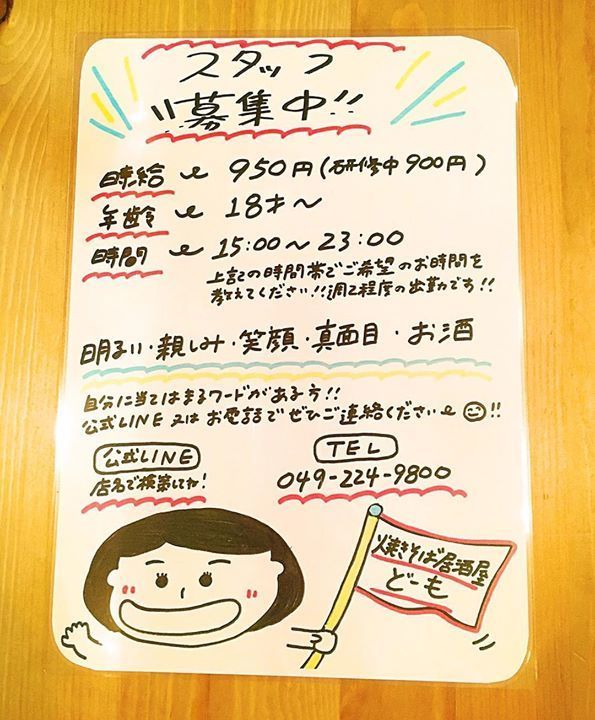 スタッフ
募集中!!
時給 950円(研修中900円)
年齢 18才〜
時間 15:00〜23:00
上記の時間帯でご希望のお時間を
教えてください!!週2程度の出勤です!!
明るい・親しみ・笑顔・真面目・お酒
自分に当てはまるワードがある方!!
公式LINE又はお電話でぜひご連絡ください!!
公式LINE
店名で検索してね!
TEL
049-224-9800
焼きそば居酒屋
どーも